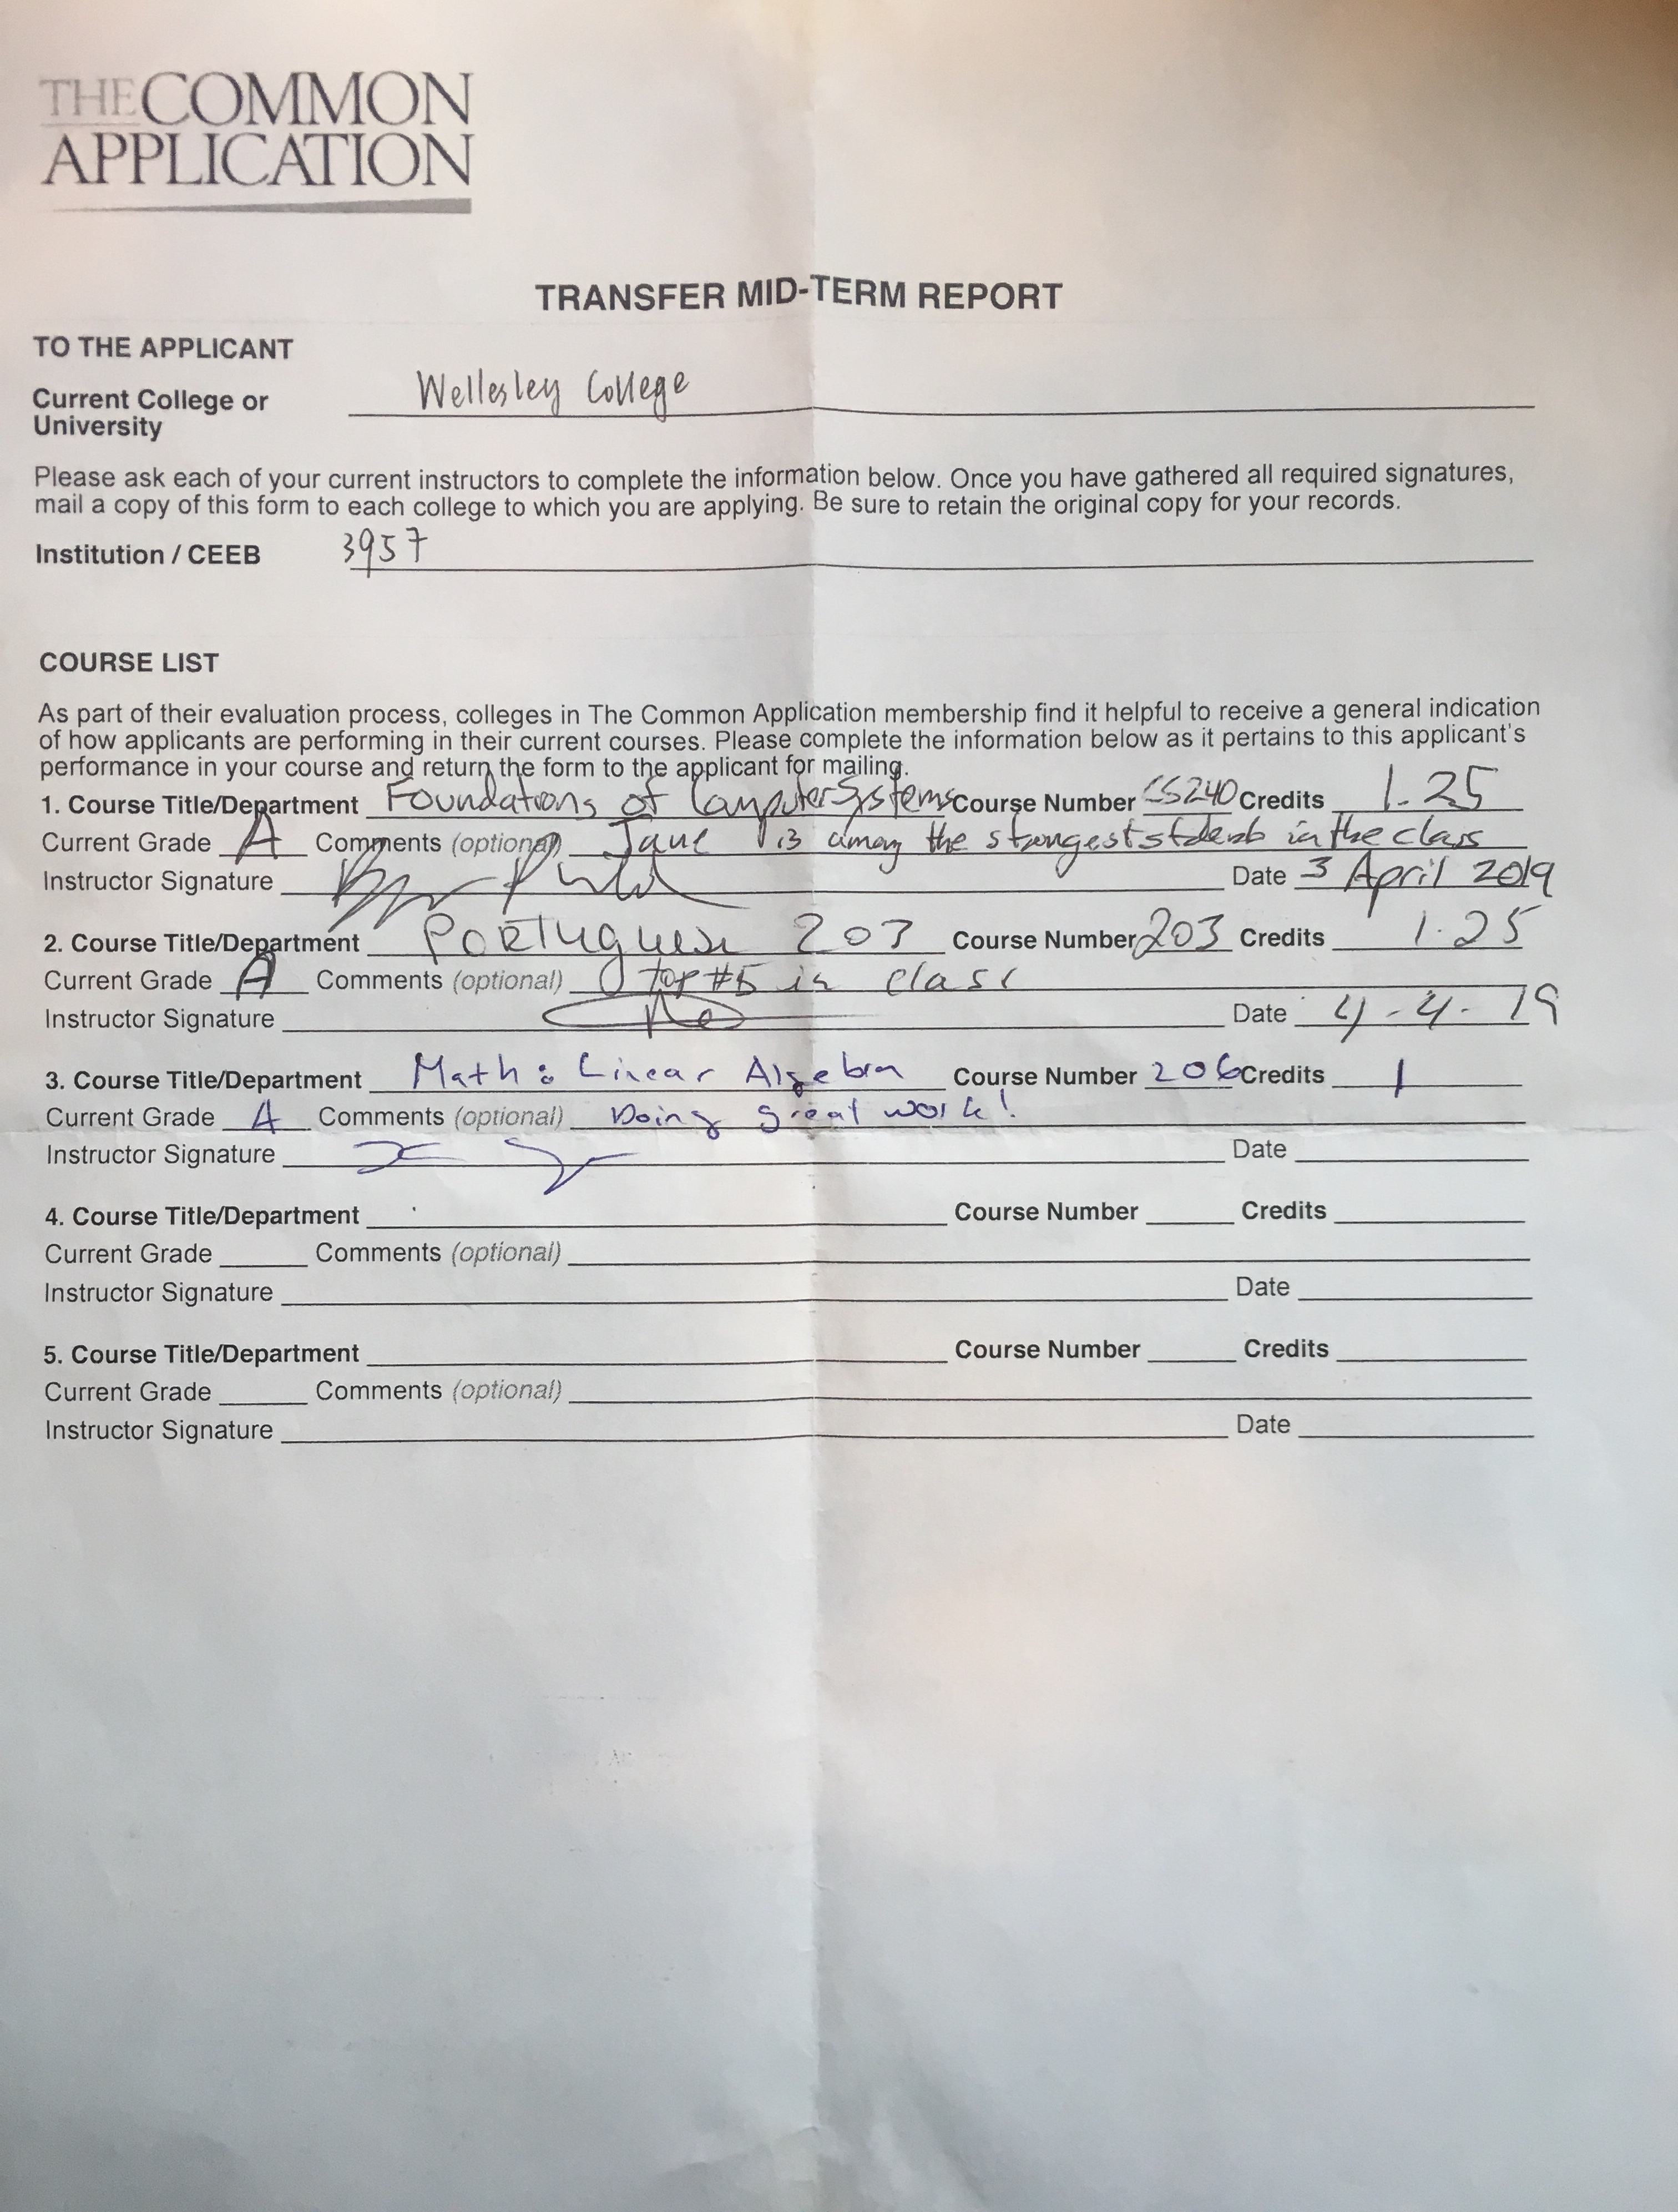 THE COMMON
APPLICATION
TRANSFER MID-TERM REPORT
TO THE APPLICANT
Current College or
University
Wellesley College
Please ask each of your current instructors to complete the information below. Once you have gathered all required signatures,
mail a copy of this form to each college to which you are applying. Be sure to retain the original copy for your records.
Institution / CEEB 3957
COURSE LIST
As part of their evaluation process, colleges in The Common Application membership find it helpful to receive a general indication
of how applicants are performing in their current courses. Please complete the information below as it pertains to this applicant's
performance in your course and return the form to the applicant for mailing.
1. Course Title/Department Foundations of Computer Systems Course Number CS240 Credits 1.25
Current Grade A Comments (optional) Jane is among the strongest students in the class
Instructor Signature Date 3 April 2019
2. Course Title/Department Portuguese 203 Course Number 203 Credits 1.25
Current Grade A Comments (optional) top #5 in class
Instructor Signature Date 4-4-19
3. Course Title/Department Math: Linear Algebra Course Number 206 Credits 1
Current Grade A Comments (optional) Doing great work!
Instructor Signature Date
4. Course Title/Department Course Number Credits
Current Grade Comments (optional)
Instructor Signature Date
5. Course Title/Department Course Number Credits
Current Grade Comments (optional)
Instructor Signature Date